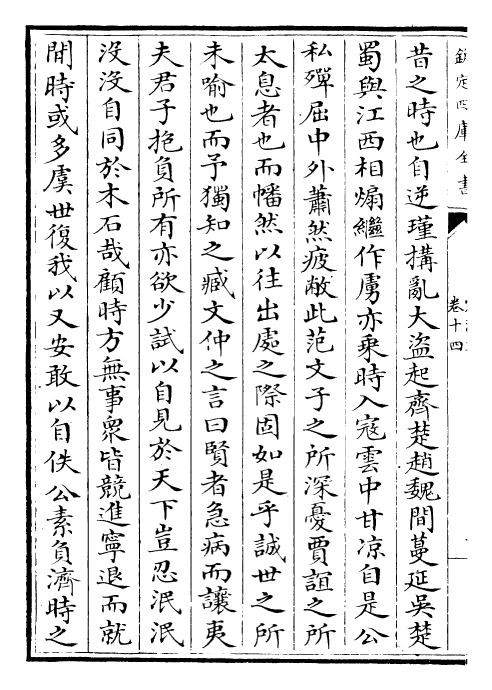 欽定四庫全書
卷十四
昔之時也自逆瑾搆亂大盜起齊楚趙魏間蔓延吳楚
蜀與江西相煽繼作虜亦乘時入寇雲中甘凉自是公
私殫屈中外蕭然疲敝此范文子之所深憂賈誼之所
太息者也而幡然以往出處之際固如是乎誠世之所
未喻也而予獨知之臧文仲之言曰賢者急病而讓夷
夫君子抱負所有亦欲少試以自見於天下豈忍泯泯
沒沒自同於木石哉顧時方無事衆皆競進寧退而就
閒時或多虞世復我以又安敢以自佚公素負濟時之